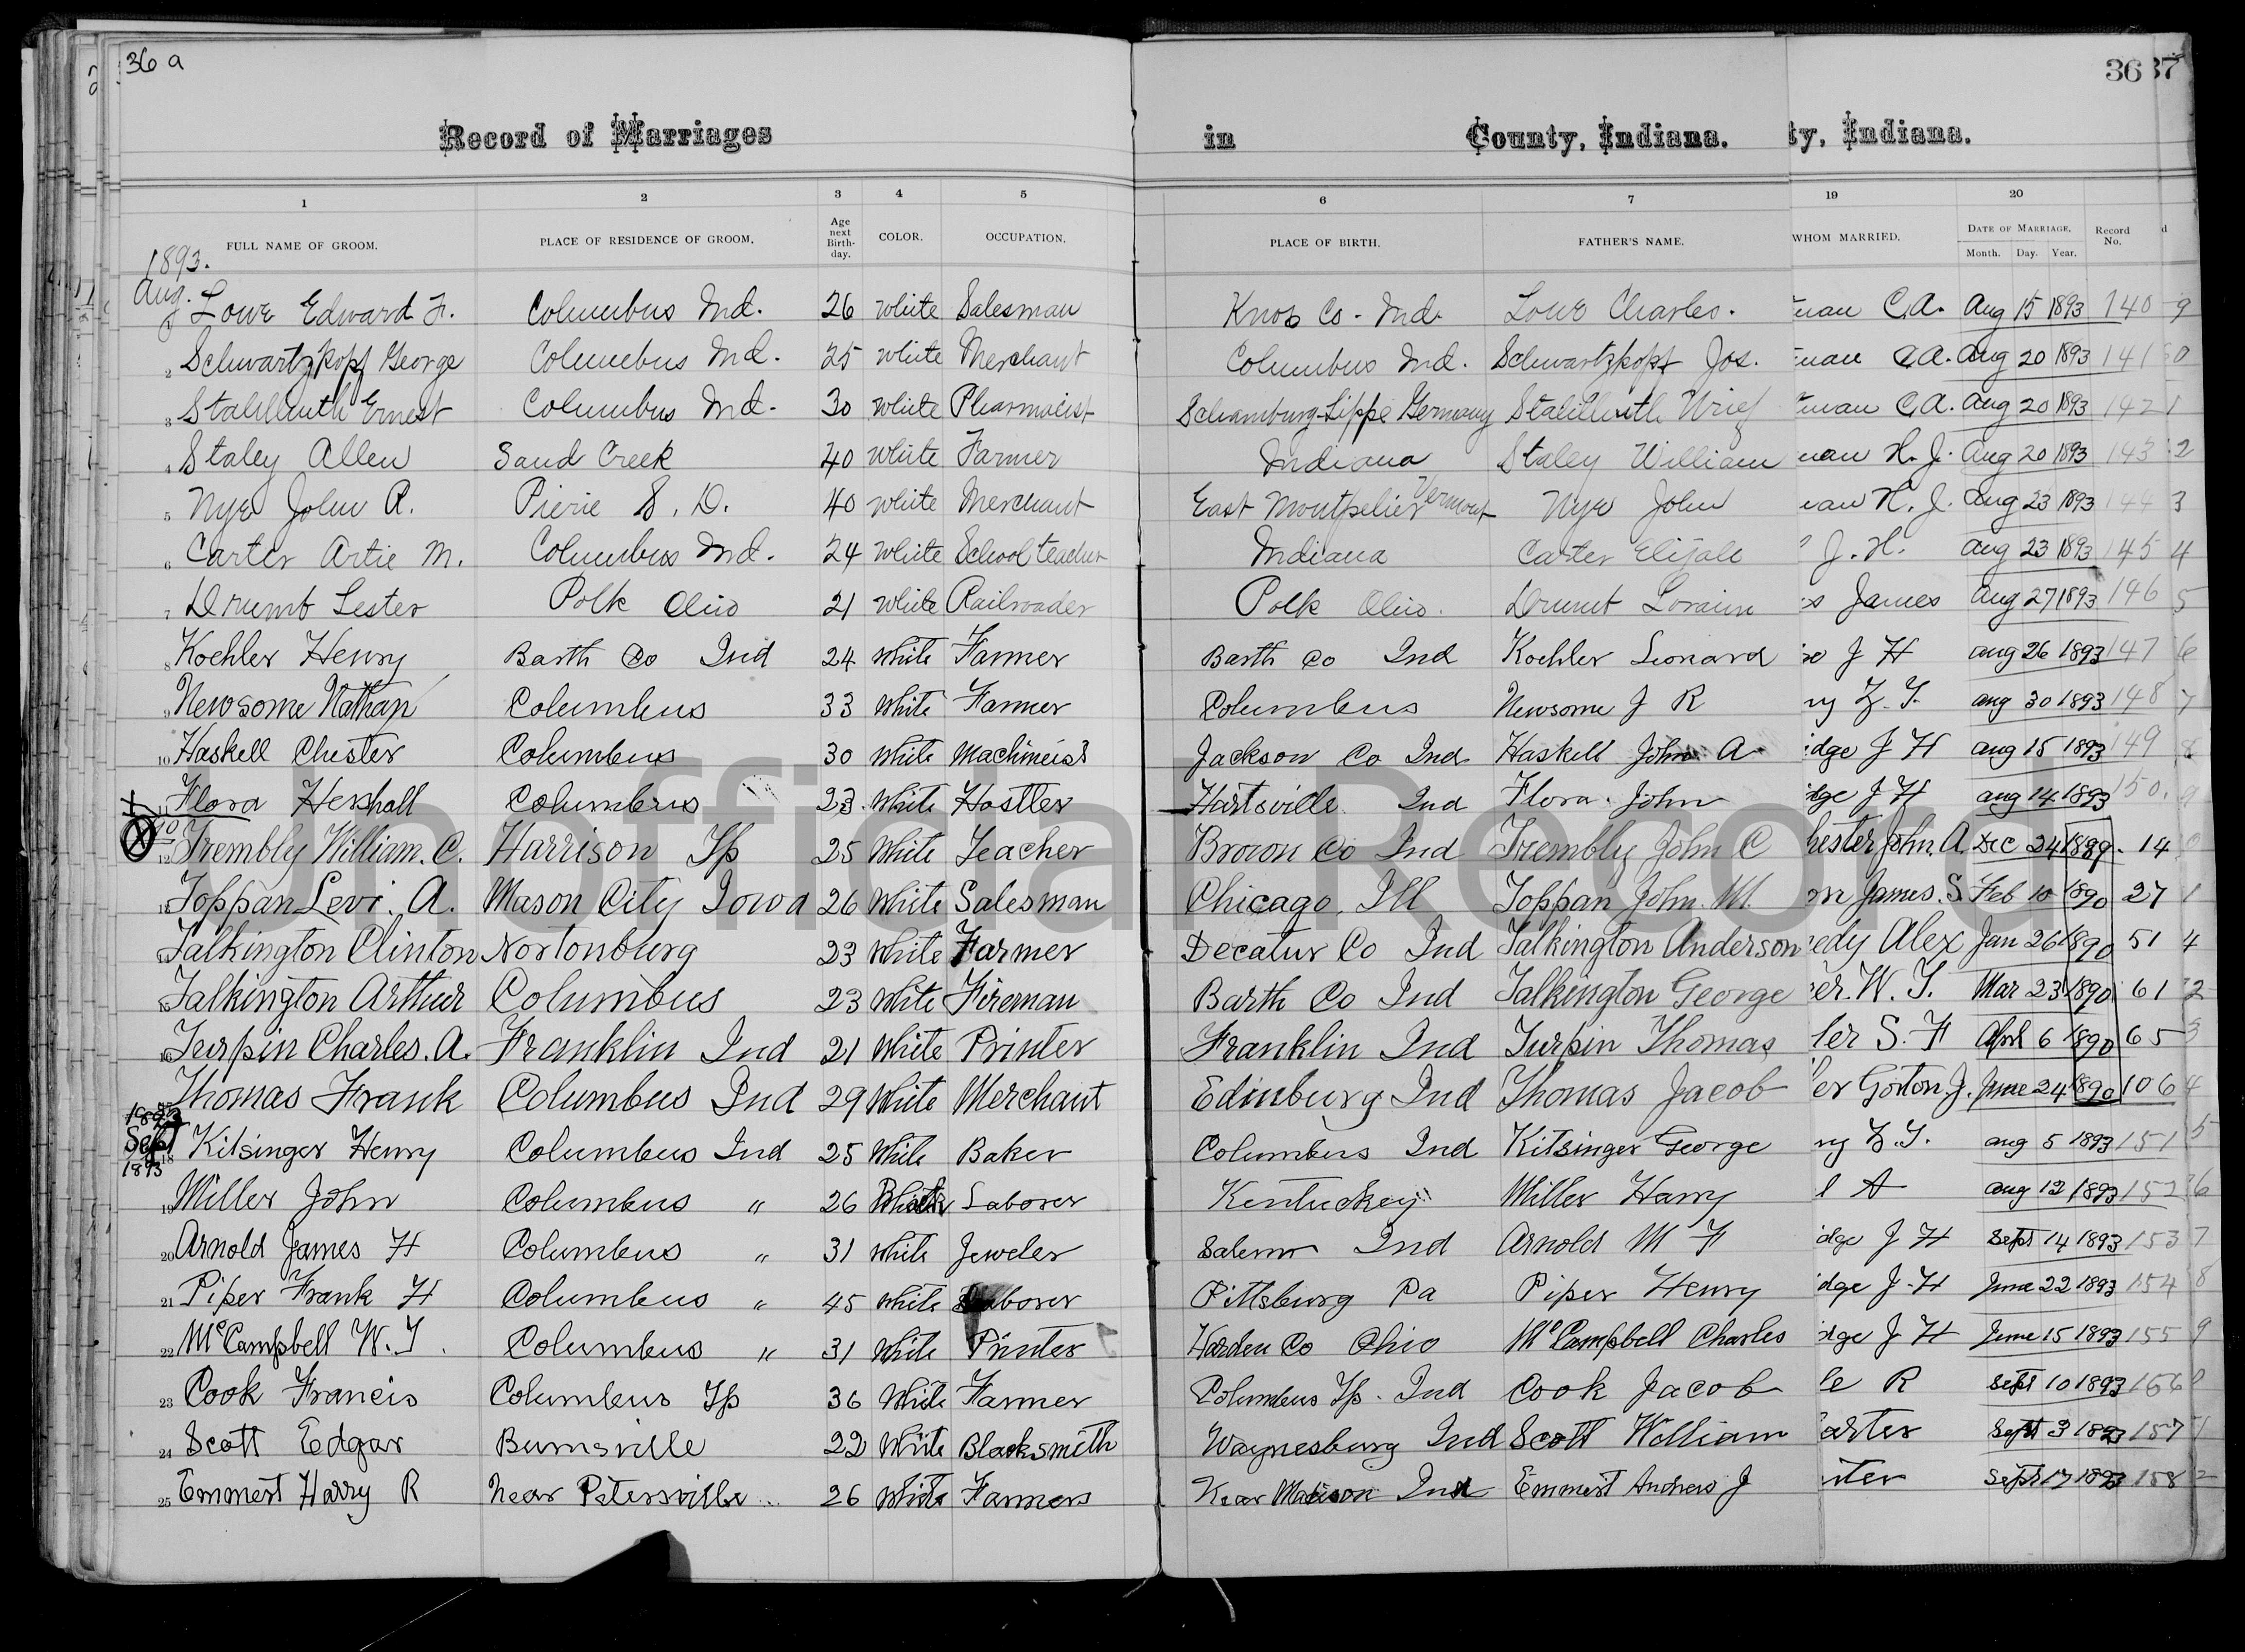 36 a
36 37
Record of Marriages in County, Indiana. ty, Indiana.
1 2 3 4 5 6 7 19 20
FULL NAME OF GROOM. PLACE OF RESIDENCE OF GROOM. Age next Birth-day. COLOR. OCCUPATION. PLACE OF BIRTH. FATHER'S NAME. WHOM MARRIED. DATE OF MARRIAGE. Month. Day. Year. Record No.
1893.
Aug. Lowe Edward F. Columbus Ind. 26 White Salesman Knox Co. Ind. Lowe Charles. C.A. Aug 15 1893 140 9
2 Schwartzkopf George Columbus Ind. 25 White Merchant Columbus Ind. Schwartzkopf Jos. C.A. Aug 20 1893 141 0
3 Stahlhuth Ernest Columbus Ind. 30 White Pharmacist Schamburg-Lippe Germany Stahlhuth C.A. Aug 20 1893 142 1
4 Staley Allen Sand Creek 40 White Farmer Indiana Staley William H. J. Aug 20 1893 143 2
5 Nye John R. Pierie S. D. 40 White Merchant East Montpelier Vermont Nye John H. J. Aug 23 1893 144 3
6 Carter Artie M. Columbus Ind. 24 White School teacher Indiana Carter Elijah J. H. Aug 23 1893 145 4
7 Drumb Lester Polk Ohio 21 White Railroader Polk Ohio. Lorain s James Aug 27 1893 146 5
8 Koehler Henry Barth Co Ind 24 White Farmer Barth Co Ind Koehler Leonard J H Aug 26 1893 147 6
9 Newsome Nathan Columbus 33 White Farmer Columbus Newsome J R ny Z. T. Aug 30 1893 148 7
10 Haskell Chester Columbus 30 White Machineist Jackson Co Ind Haskell John A idge J H Aug 15 1893 149 8
X 11 Flora Hershall Columbus 23 White Hostler Hartsville Ind Flora John dge J H Aug 14 1893 150. 9
X 12 Trembly William. C. Harrison Tp 25 White Teacher Brown Co Ind Trembly John C hester John. A. Dec 24 1889. 14 0
13 Toppan Levi. A. Mason City Iowa 26 White Salesman Chicago, Ill Toppan John. M. m James. S Feb 10 1890 27 1
14 Talkington Clinton Nortonburg 23 White Farmer Decatur Co Ind Talkington Anderson edy Alex Jan 26 1890 51 4
15 Talkington Arthur Columbus 23 White Fireman Barth Co Ind Talkington George er. W. T. Mar 23 1890 61 2
16 Turpin Charles. A. Franklin Ind 21 White Printer Franklin Ind Turpin Thomas ler S. F Aprl 6 1890 65 3
Thomas Frank Columbus Ind 29 White Merchant Edinburg Ind Thomas Jacob er Gorton. J. June 24 1890 106 4
Sept 1893 18 Kitsinger Henry Columbus Ind 25 White Baker Columbus Ind Kitsinger George ny Z. T. Aug 5 1893 151 5
19 Miller John Columbus " 26 Laborer Kentuckey Miller Harry l A Aug 12 1893 152 6
20 Arnold James H Columbus " 31 White Jeweler Salem Ind Arnold M F idge J H Sept 14 1893 153 7
21 Piper Frank H Columbus " 45 White Laborer Pittsburg Pa Piper Henry idge J H June 22 1893 154 8
22 McCampbell W. T. Columbus " 31 White Printer Harden Co Ohio McCampbell Charles idge J H June 15 1893 155 9
23 Cook Francis Columbus Tp 36 White Farmer Columbus Tp. Ind Cook Jacob le R Sept 10 1893 156
24 Scott Edgar Burnsville 22 White Blacksmith Waynesburg Ind Scott William arter Sept 3 1893 157 1
25 Emmert Harry R Near Petersville 26 White Farmers Near Madison Ind Emmert Andrew J rter Sept 17 1893 158 2
Unofficial Record